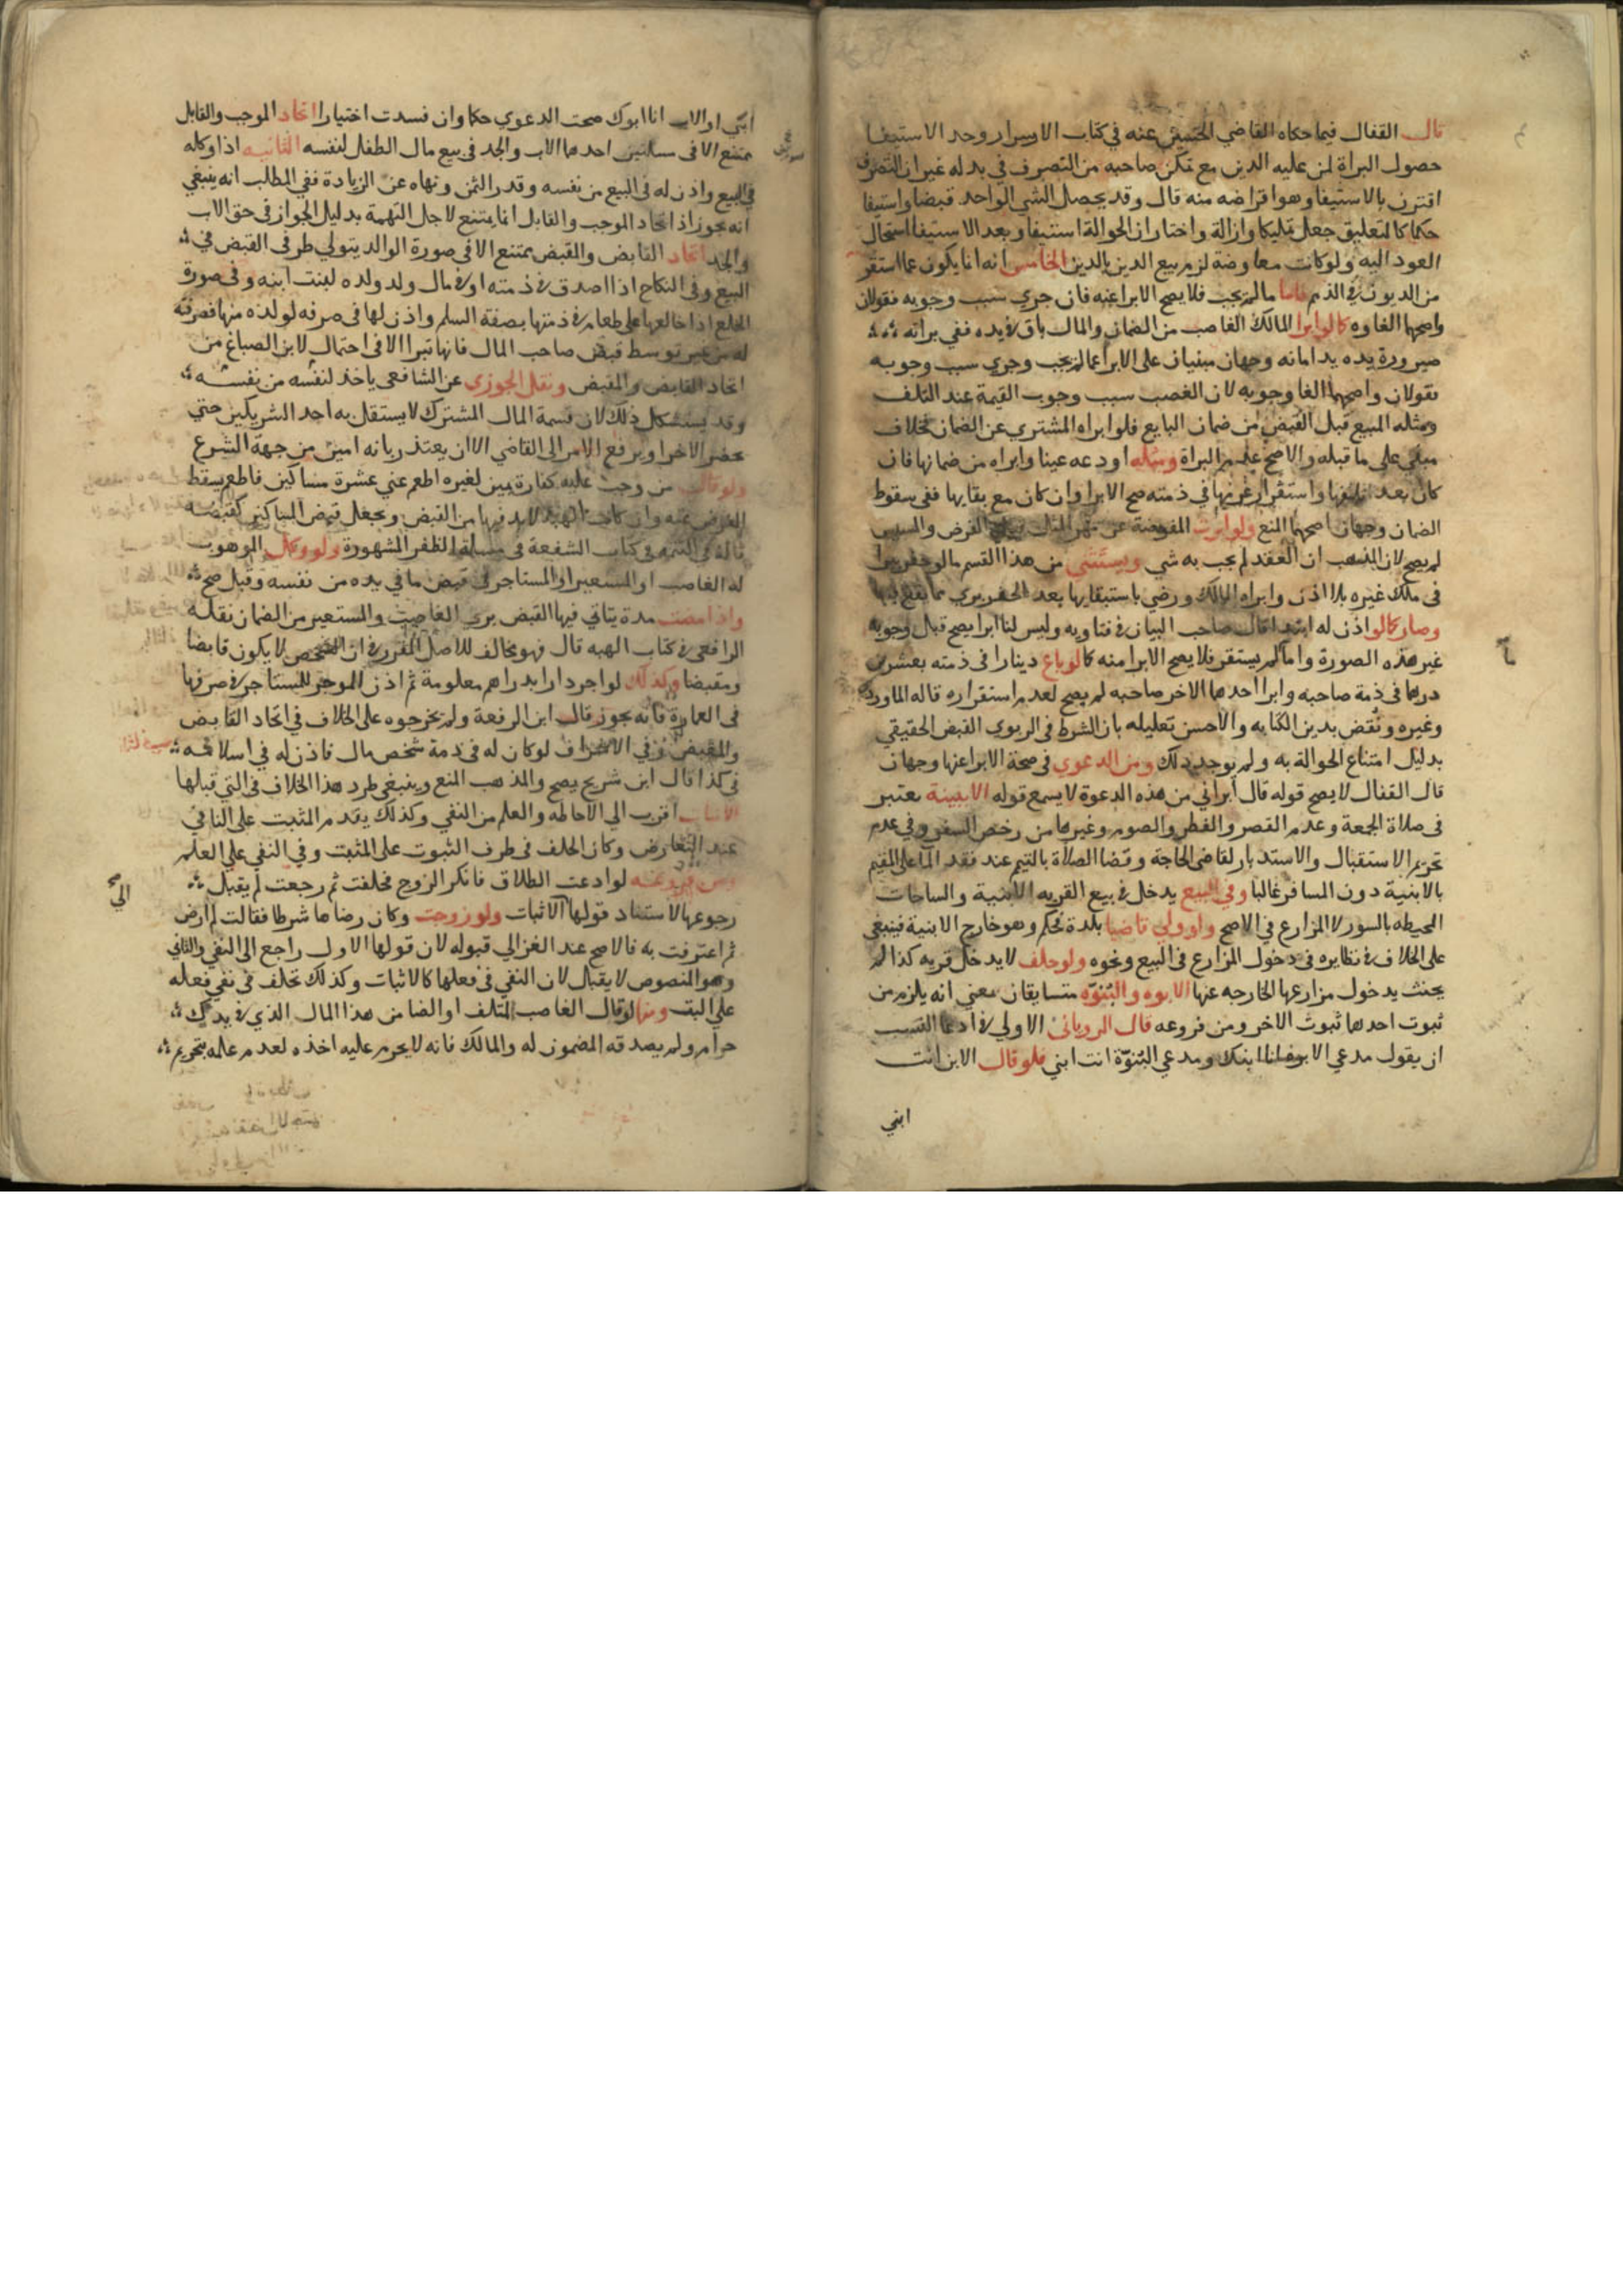 قال القفال فيما حكاه القاضي الحسين عنه في كتاب الاسرار وحد الاستيفا
حصول البراة لمن عليه الدين مع تمكن صاحبه من التصرف في بدله غير ان التصرف
اقترن بالاستيفا وهو اقراضه منه قال وقد يحصل الشي الواحد قبضا واستيفا
حكما كالتعليق جعل تمليكا وازالة واختار ان الحوالة استيفا وبعد الاستيفا استحال
العود اليه ولو كانت معاوضة لزم بيع الدين بالدين الخامس انه انما يكون عما استقر
من الديون في الذمم فاما ما لم يجب فلا يصح الابرا عنه فان جري سبب وجوبه فقولان
واصحها الغاوه كالو ابرا المالك الغاصب من الضمان والمال باق في يده ففي براته
صيرورة يده يد امانه وجهان مبنيان على الابرا عما لم يجب وجري سبب وجوبه
فقولان واصحهما الغا وجوبه لان الغصب سبب وجوب القيمة عند التلف
ومثله المبيع قبل القبض من ضمان البايع فلو ابراه المشتري عن الضمان خلاف
مبني على ما قبله والاصح عدم البراة ومثله اودعه عينا وابراه من ضمانها فان
كان بعد تلفها واستقرار غرمها في ذمته صح الابرا وان كان مع بقايها ففي سقوط
الضمان وجهان اصحهما المنع ولو ابرت المفوضة عن مهر المثل قبل الفرض والمسيس
لم يصح لان المذهب ان العقد لم يجب به شي ويستثنى من هذا القسم ما لو حفر بيرا
في ملك غيره بلا اذن وابراه المالك ورضي باستبقايها بعد الحفر بري مما يقع فيها
وصار كالو اذن له ابتدا قال صاحب البيان في فتاويه وليس لنا ابرا يصح قبل وجوبه
غير هذه الصورة واما ما لم يستقر فلا يصح الابرا منه كالو باع دينارا في ذمته بعشرين
درهما في ذمة صاحبه وابرا احدهما الاخر صاحبه لم يصح لعدم استقراره قاله الماوردي
وغيره ونقض بدين الكتابه والاحسن تعليله بان الشرط في الربوي القبض الحقيقي
بدليل امتناع الحوالة به ولم يوجد ذلك ومن الدعوي في صحة الابرا عنها وجهان
قال القفال لا يصح قوله قال ابراني من هذه الدعوة لا يسمع قوله الابنية يعتبر
في صلاة الجمعة وعدم القصر والفطر والصوم وغيرها من رخص السفر وفي عدم
تحريم الاستقبال والاستدبار لقاضي الحاجة وقضا الصلاة بالتيمم عند فقد الما على المقيم
بالابنية دون المسافر غالبا وفي البيع يدخل في بيع القريه الابنية والساحات
المحيطه بالسور لا المزارع في الاصح واو ولي قاضيا بلدة فحكم وهو خارج الابنية فينبغي
على الخلاف في نظايره في دخول المزارع في البيع ونحوه ولو حلف لا يدخل قريه كذا لم
يحنث بدخول مزارعها الخارجه عنها الابوه والبنوّه متسابقان بمعني انه يلزم من
ثبوت احدهما ثبوت الاخر ومن فروعه قال الروياني الاولي في ادعا النسب
ان يقول مدعي الابوه انا ابنك ومدعي البنوّة انت ابني فلو قال الابن انت
ابني
ابني او الاب انا ابوك صحت الدعوي حكما وان فسدت اختيارا اتحاد الموجب والقابل
يمتنع الا في مسلتين احدهما الاب والجد في بيع مال الطفل لنفسه الثانيه اذا وكله
في البيع واذن له في البيع من نفسه وقدر الثمن ونهاه عن الزيادة ففي المطلب انه ينبغي
انه يجوز اذ اتحاد الموجب والقابل انما يمتنع لاجل التهمة بدليل الجواز في حق الاب
والجد اتحاد القابض والمقبض يمتنع الا في صورة الوالد يتولي طرفي القبض في
البيع وفي النكاح اذا اصدق في ذمته او في مال ولد ولده لبنت ابنه وفي صورة
الخلع اذا خالعها على طعام في ذمتها بصفة السلم واذن لها في صرفه لولده منها فصرفته
له من غير توسط قبض صاحب المال فانها تبرا الا في احتمال لابن الصباغ من
اتحاد القابض والمقبض ونقل الجوزي عن الشافعي ياخذ لنفسه من نفسه
وقد يستشكل ذلك لان قسمة المال المشترك لا يستقل به احد الشريكين حتي
يحضر الاخر او يرفع الامر الى القاضي الا ان يعتذر بانه امين من جهة الشرع
ولو قال من وجبت عليه كفارة يمين لغيره اطعم عني عشرة مساكين فاطعم يسقط
الفرض عنه وان كانت الهبه لابد فيها من القبض ويجعل قبض المساكين كقبضه
قاله في التتمه في كتاب الشفعة في مسلة الظفر المشهورة ولو وكل الموهوب
له الغاصب او المستعير او المستاجر في قبض ما في يده من نفسه وقبل صح
واذا مضت مدة يتاتي فيها القبض بري الغاصب والمستعير من الضمان نقله
الرافعي في كتاب الهبه قال فهو مخالف للاصل المقرر في ان الشخص لا يكون قابضا
ومقبضا وكذلك لو اجر دارا بدراهم معلومة ثم اذن الموجر للمستاجر في صرفها
في العمارة فانه يجوز قال ابن الرفعة ولم يخرجوه على الخلاف في اتحاد القابض
والمقبض وفي الاشراف لو كان له في ذمة شخص مال فاذن له في اسلامه
في كذا قال ابن شريح يصح والمذهب المنع وينبغي طرد هذا الخلاف في التي قبلها
الاثبات اقرب الى الاحاطه والعلم من النفي وكذلك يقدم المثبت على النافي
عند التعارض وكان الحلف في طرف الثبوت على المثبت وفي النفي على العلم
ومن فروعه لو ادعت الطلاق فانكر الزوج فحلفت ثم رجعت لم يقبل
رجوعها لاستناد قولها الاثبات ولو زوجت وكان رضاها شرطا فقالت لم ارض
ثم اعترفت به فالاصح عند الغزالي قبوله لان قولها الاول راجع الى النفي والثاني
وهو المنصوص لا يقبل لان النفي في فعلها كالاثبات وكذلك تحلف في نفي فعله
على البت ومنها لو قال الغاصب المتلف او الضامن هذا المال الذي في يدك
حرام ولم يصدقه المضمون له والمالك فانه لا يحرم عليه اخذه لعدم علمه بتحريم